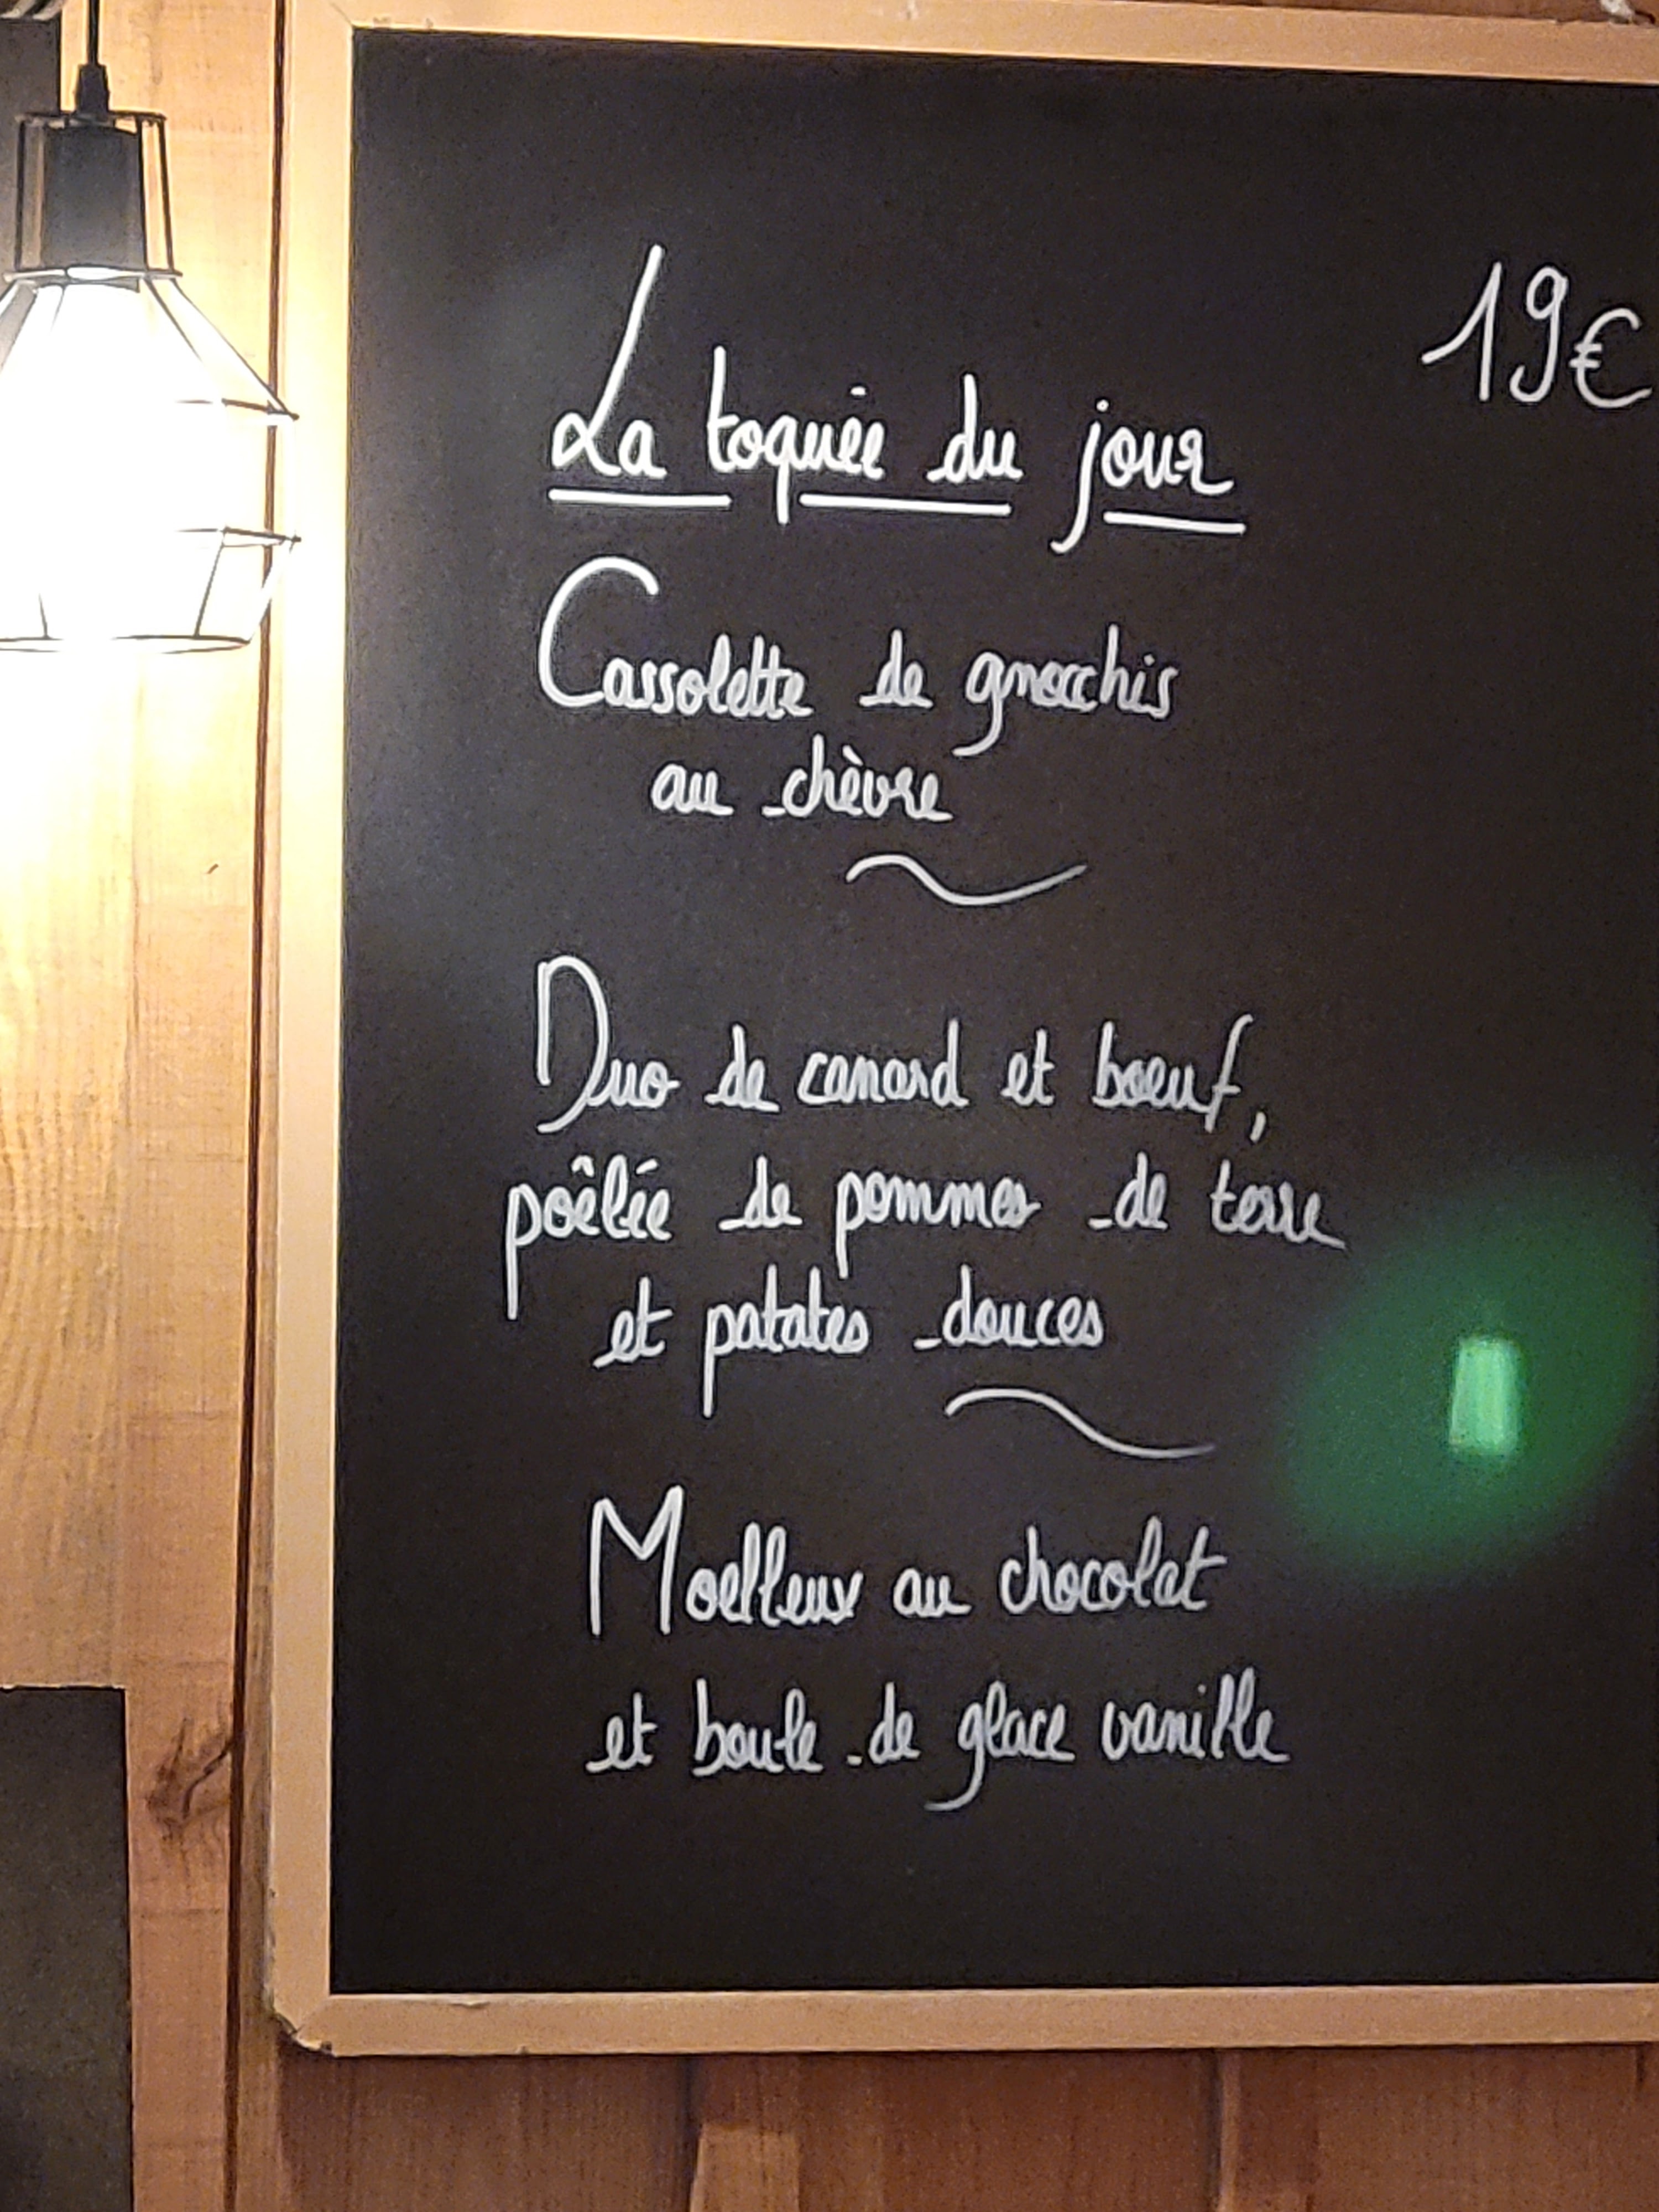 19€
La toquée du jour
Cassolette de gnocchis
au chèvre
Duo de canard et boeuf,
poêlée de pommes de terre
et patates douces
Moelleux au chocolat
et boule de glace vanille